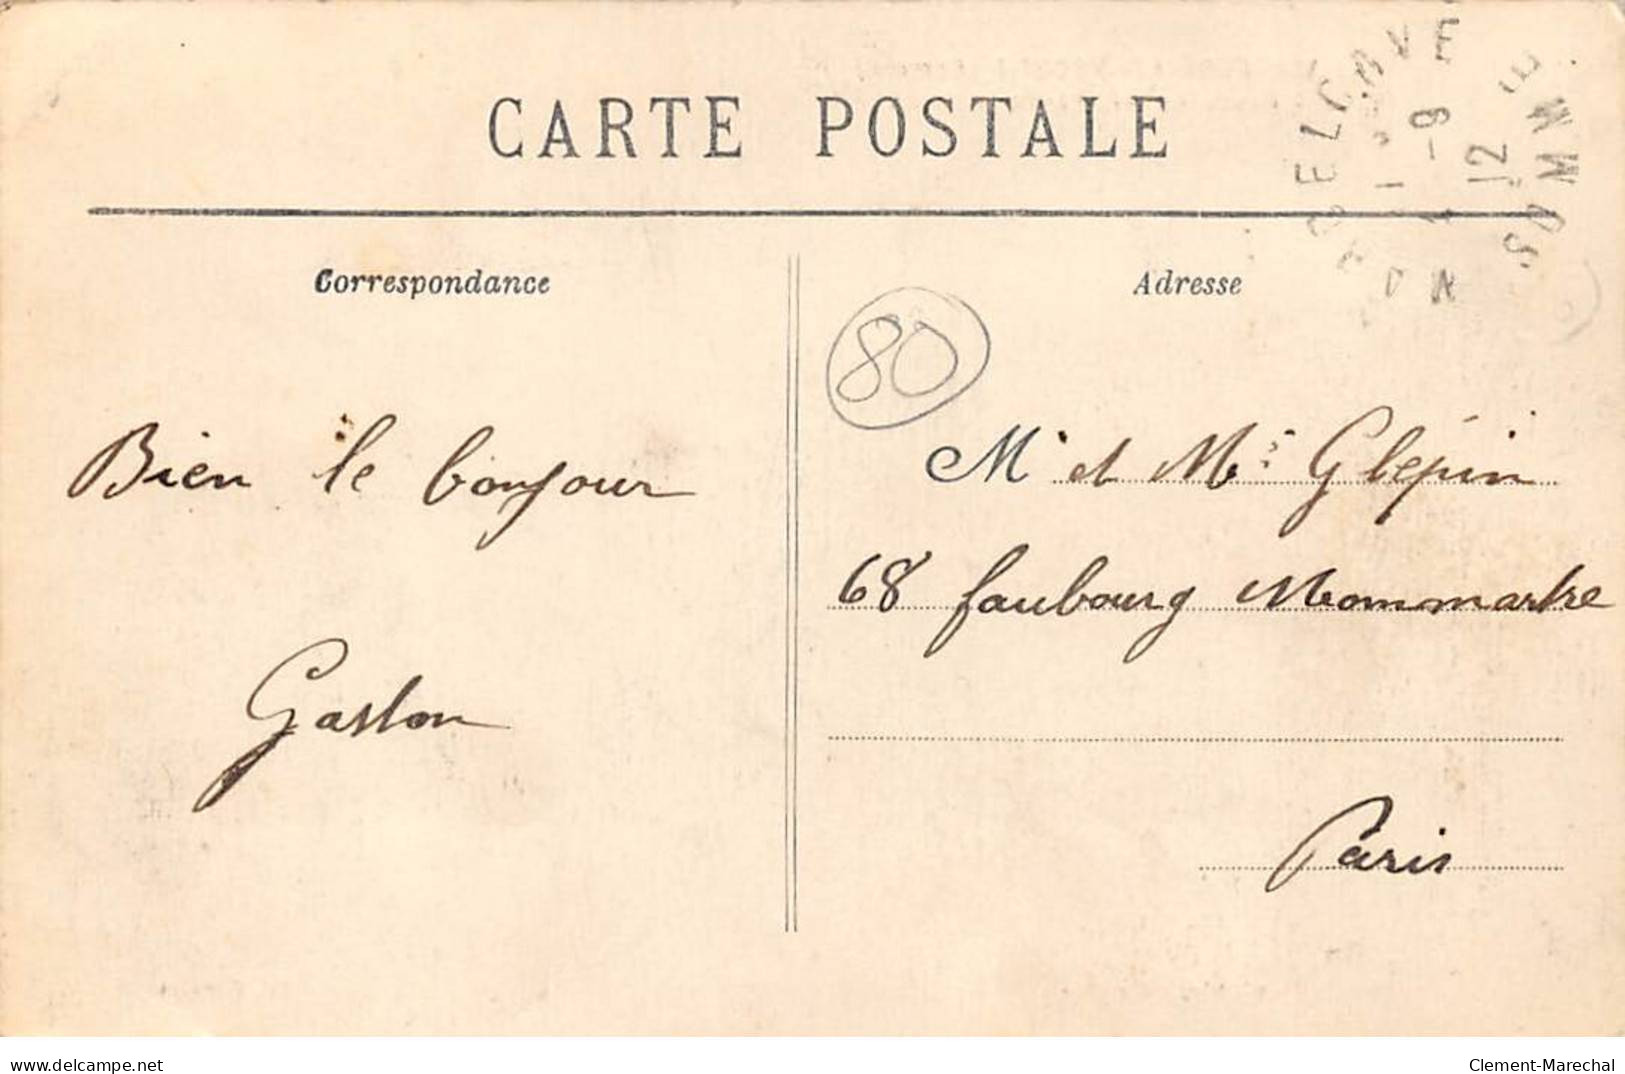 CARTE POSTALE
Correspondance
Adresse
80
Bien le bonjour
Gaston
Mr et Me Glépin
68 faubourg Mommartre
Paris
SOMME
-9
12
delcampe.net
Clement-Marechal